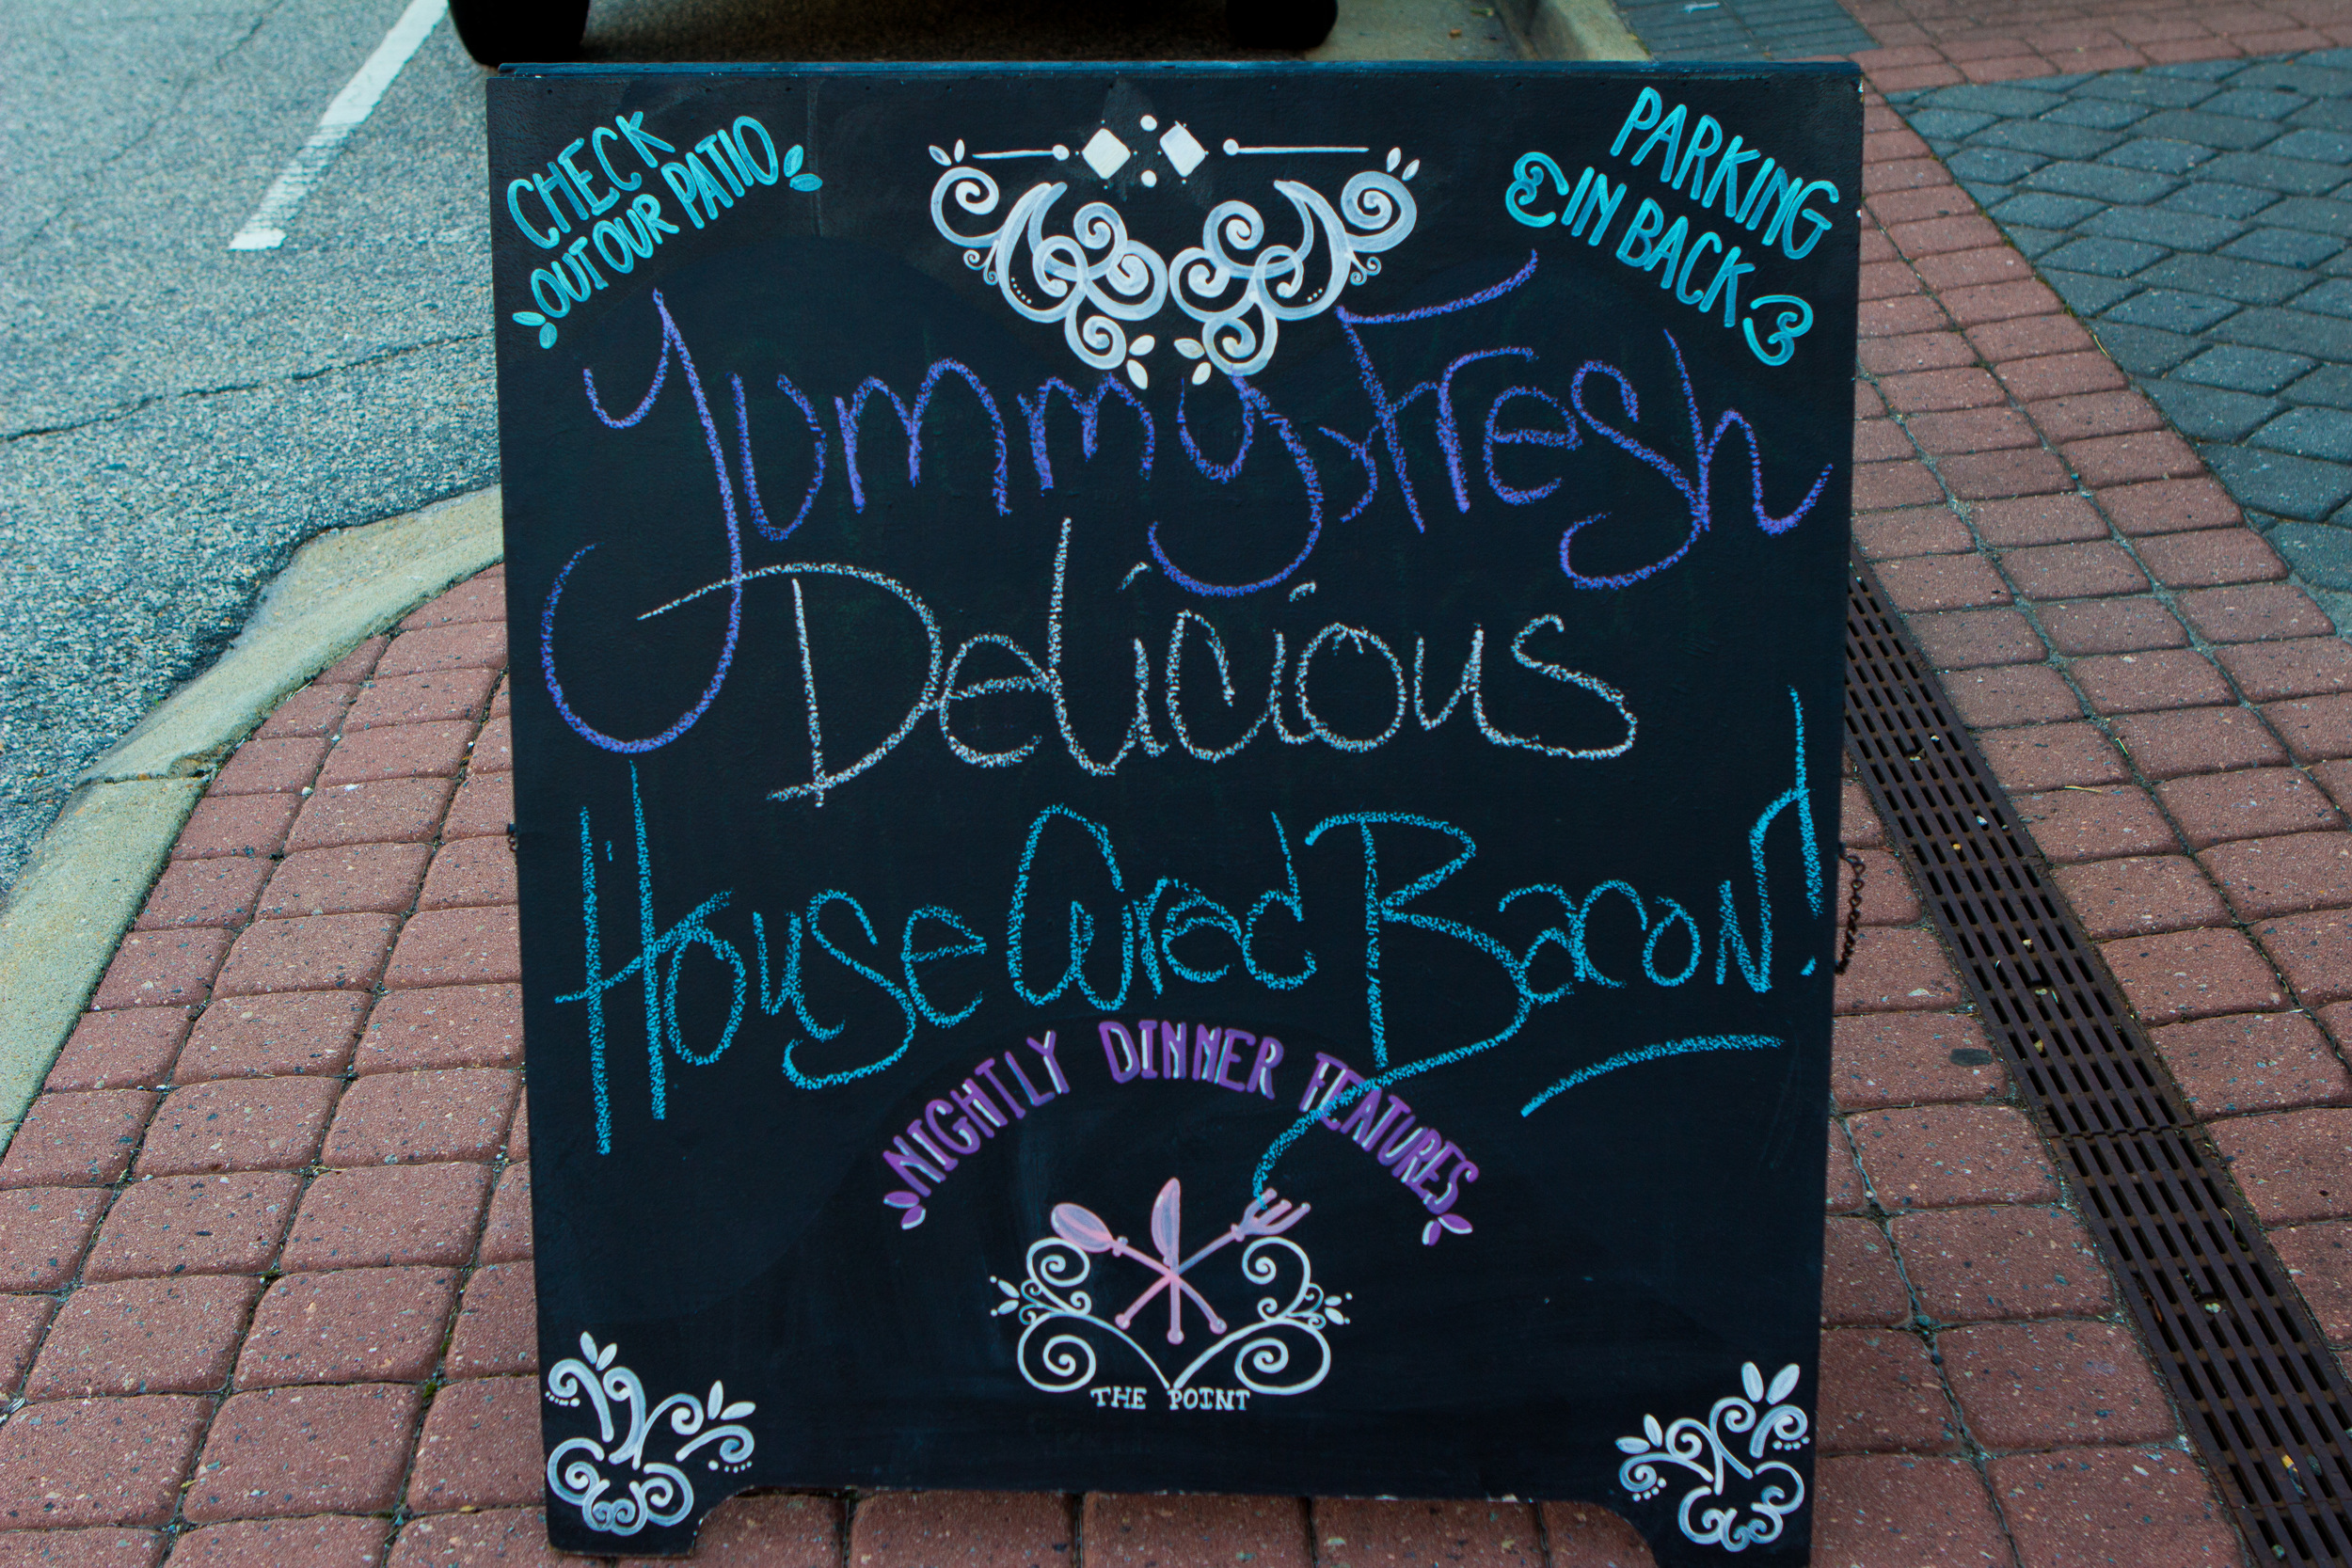 CHECK
OUT OUR PATIO
PARKING
IN BACK
Yummy, Fresh
Delicious
House Cured Bacon!
NIGHTLY DINNER FEATURES
THE POINT